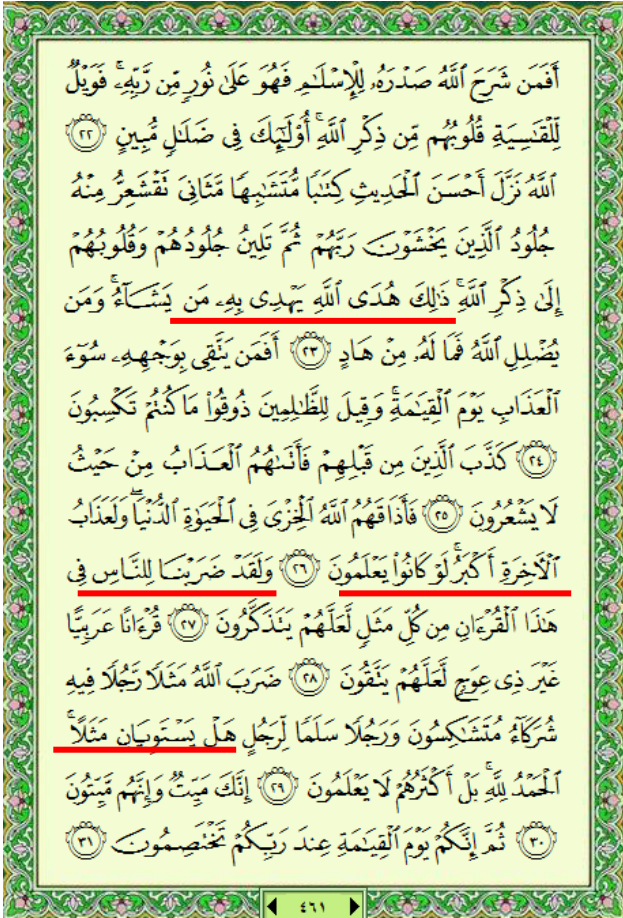 أَفَمَن شَرَحَ ٱللَّهُ صَدْرَهُۥ لِلْإِسْلَٰمِ فَهُوَ عَلَىٰ نُورٍ مِّن رَّبِّهِۦ ۚ فَوَيْلٌ
لِّلْقَٰسِيَةِ قُلُوبُهُم مِّن ذِكْرِ ٱللَّهِ ۚ أُو۟لَٰٓئِكَ فِى ضَلَٰلٍ مُّبِينٍ ﴿٢٢﴾
ٱللَّهُ نَزَّلَ أَحْسَنَ ٱلْحَدِيثِ كِتَٰبًا مُّتَشَٰبِهًا مَّثَانِىَ تَقْشَعِرُّ مِنْهُ
جُلُودُ ٱلَّذِينَ يَخْشَوْنَ رَبَّهُمْ ثُمَّ تَلِينُ جُلُودُهُمْ وَقُلُوبُهُمْ
إِلَىٰ ذِكْرِ ٱللَّهِ ۚ ذَٰلِكَ هُدَى ٱللَّهِ يَهْدِى بِهِۦ مَن يَشَآءُ ۚ وَمَن
يُضْلِلِ ٱللَّهُ فَمَا لَهُۥ مِنْ هَادٍ ﴿٢٣﴾ أَفَمَن يَتَّقِى بِوَجْهِهِۦ سُوٓءَ
ٱلْعَذَابِ يَوْمَ ٱلْقِيَٰمَةِ ۚ وَقِيلَ لِلظَّٰلِمِينَ ذُوقُوا۟ مَا كُنتُمْ تَكْسِبُونَ
﴿٢٤﴾ كَذَّبَ ٱلَّذِينَ مِن قَبْلِهِمْ فَأَتَىٰهُمُ ٱلْعَذَابُ مِنْ حَيْثُ
لَا يَشْعُرُونَ ﴿٢٥﴾ فَأَذَاقَهُمُ ٱللَّهُ ٱلْخِزْىَ فِى ٱلْحَيَوٰةِ ٱلدُّنْيَا ۖ وَلَعَذَابُ
ٱلْـَٔاخِرَةِ أَكْبَرُ ۚ لَوْ كَانُوا۟ يَعْلَمُونَ ﴿٢٦﴾ وَلَقَدْ ضَرَبْنَا لِلنَّاسِ فِى
هَٰذَا ٱلْقُرْءَانِ مِن كُلِّ مَثَلٍ لَّعَلَّهُمْ يَتَذَكَّرُونَ ﴿٢٧﴾ قُرْءَانًا عَرَبِيًّا
غَيْرَ ذِى عِوَجٍ لَّعَلَّهُمْ يَتَّقُونَ ﴿٢٨﴾ ضَرَبَ ٱللَّهُ مَثَلًا رَّجُلًا فِيهِ
شُرَكَآءُ مُتَشَٰكِسُونَ وَرَجُلًا سَلَمًا لِّرَجُلٍ هَلْ يَسْتَوِيَانِ مَثَلًا ۚ
ٱلْحَمْدُ لِلَّهِ ۚ بَلْ أَكْثَرُهُمْ لَا يَعْلَمُونَ ﴿٢٩﴾ إِنَّكَ مَيِّتٌ وَإِنَّهُم مَّيِّتُونَ
﴿٣٠﴾ ثُمَّ إِنَّكُمْ يَوْمَ ٱلْقِيَٰمَةِ عِندَ رَبِّكُمْ تَخْتَصِمُونَ ﴿٣١﴾
٤٦١